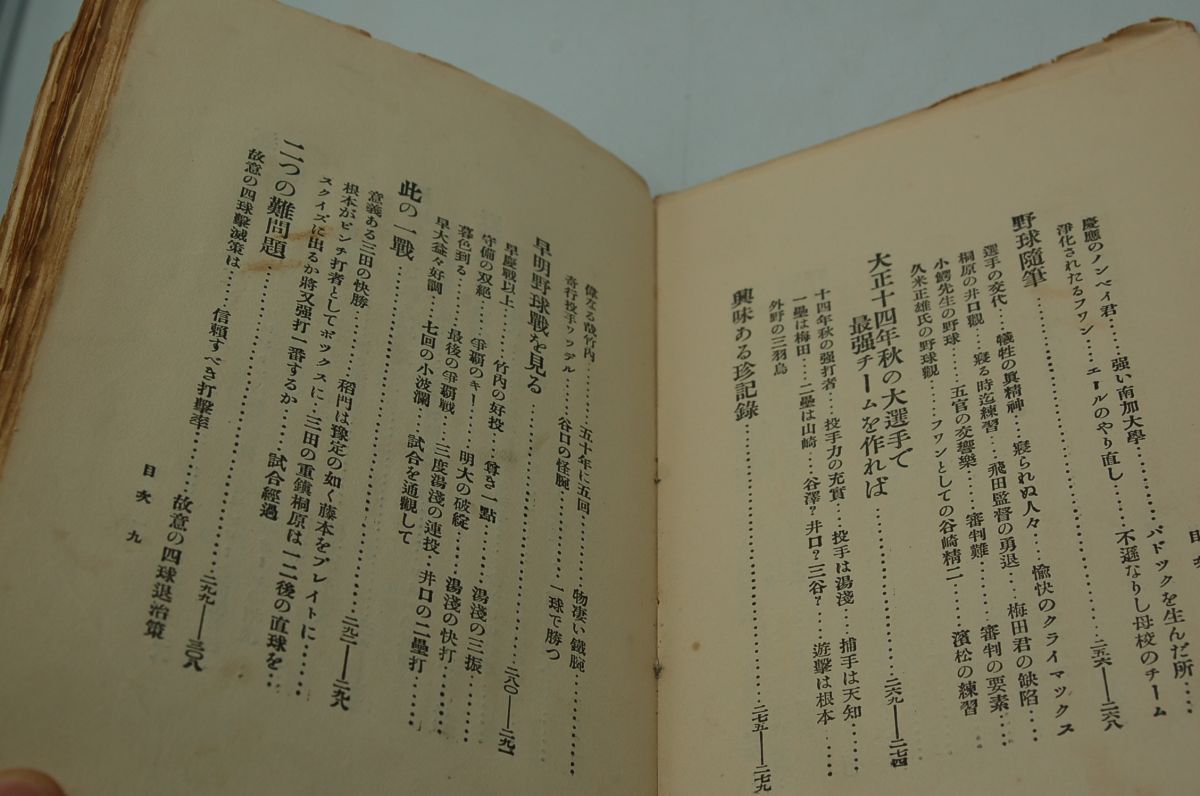 慶應のノンベイ君……強い南加大學………パドツクを生んだ所……
淨化されたるフワン……エールのやり直し……不遜なりし母校のチーム
野球隨筆……二五六——二六八
選手の交代……犧牲の眞精神……寢られぬ人々……愉快のクライマツクス
桐原の井口觀……寢る時迄練習……飛田監督の勇退……梅田君の缺陷……
小鰐先生の野球……五官の交響樂……審判難……審判の要素……
久米正雄氏の野球觀……フワンとしての谷崎精二……濱松の練習
大正十四年秋の大選手で
最强チームを作れば……二六九——二七四
十四年秋の强打者……投手力の充實……投手は湯淺……捕手は天知……
一壘は梅田……二壘は山崎……谷澤?井口?三谷?……遊擊は根本……
外野の三羽烏
興味ある珍記錄……二七五——二七九
偉なる哉竹內……五十年に五回……物凄い鐵腕……
奇行投手ワツデル……谷口の怪腕……一球で勝つ
早明野球戰を見る……二八〇——二九一
早慶戰以上……竹內の好投……尊き一點……湯淺の三振……
守備の双絕……爭覇のキー……明大の破綻……湯淺の快打……
暮色到る……最後の爭覇戰……三度湯淺の連投……井口の二壘打……
早大益々好調……七回の小波瀾……試合を通觀して
此の一戰……二九二——二九八
意義ある三田の快勝……稻門は豫定の如く藤本をプレイトに……
根本がピンチ打者としてボツクスに……三田の重鎭桐原は一二後の直球を…
スクイズに出るか將又强打一番するか……試合經過
二つの難問題……二九九——三〇八
故意の四球擊滅策は……信賴すべき打擊率……故意の四球退治策
目次 九